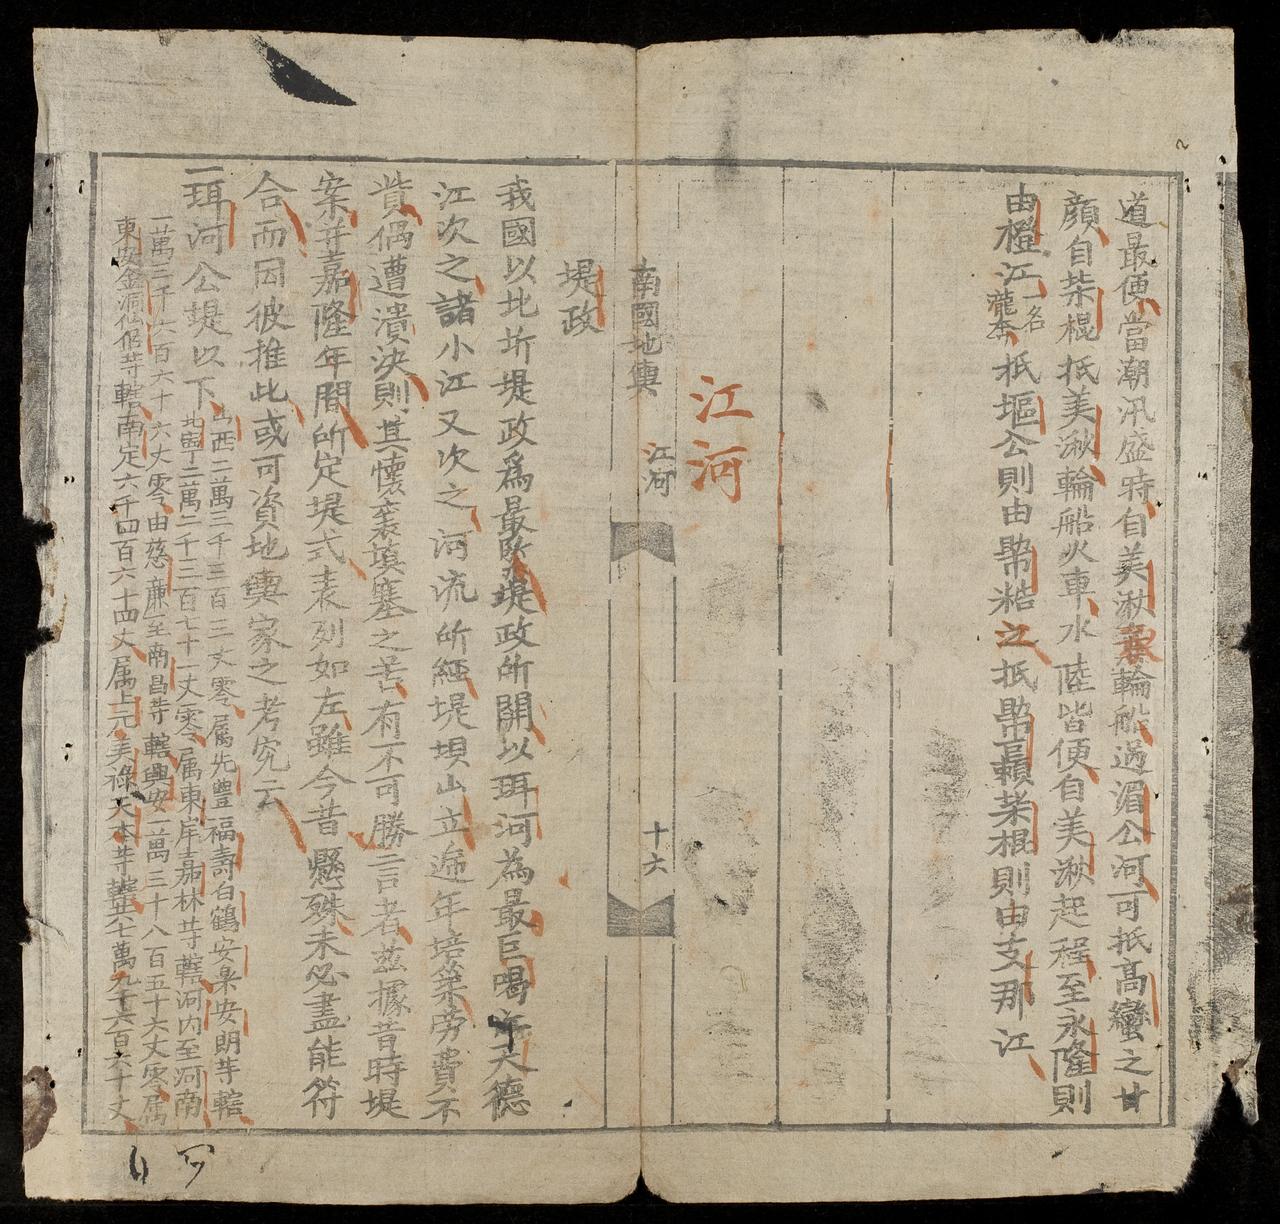 道最便當潮汛盛時自美湫襄輪船過湄公河可抵高蠻之甘
顔自柴棍抵美湫輪船火車水陸皆便自美湫起程至永隆則
由橙江一名龍奔抵塸公則由𢄂䊝之抵𢄂䫂柴棍則由支那江
江河
南國地輿 江河 十六
堤政
我國以北圻堤政爲最緊堤政所關以珥河為最巨喝江天德
江次之諸小江又次之河流所經堤垻山立遞年培築旁費不
貲偶遭潰決則其懷襄填塞之苦有不可勝言者茲據昔時堤
案并嘉隆年間所定堤式表列如左雖今昔懸殊未必盡能符
合而因彼推此或可資地輿家之考究云
一珥河公堤以下
山西二萬三千三百三丈零属先豐福壽白鶴安樂安朗䓁轄
北寧二萬二千二百七十一丈零属東岸嘉林䓁轄河内至河南
一萬三千六百六十六丈零由慈廉至南昌䓁轄興安一萬三十八百五十六丈零属
東安金洞仙侶䓁轄南定六千四百六十四丈属上元美祿天本䓁轄共七萬九千六百六十丈